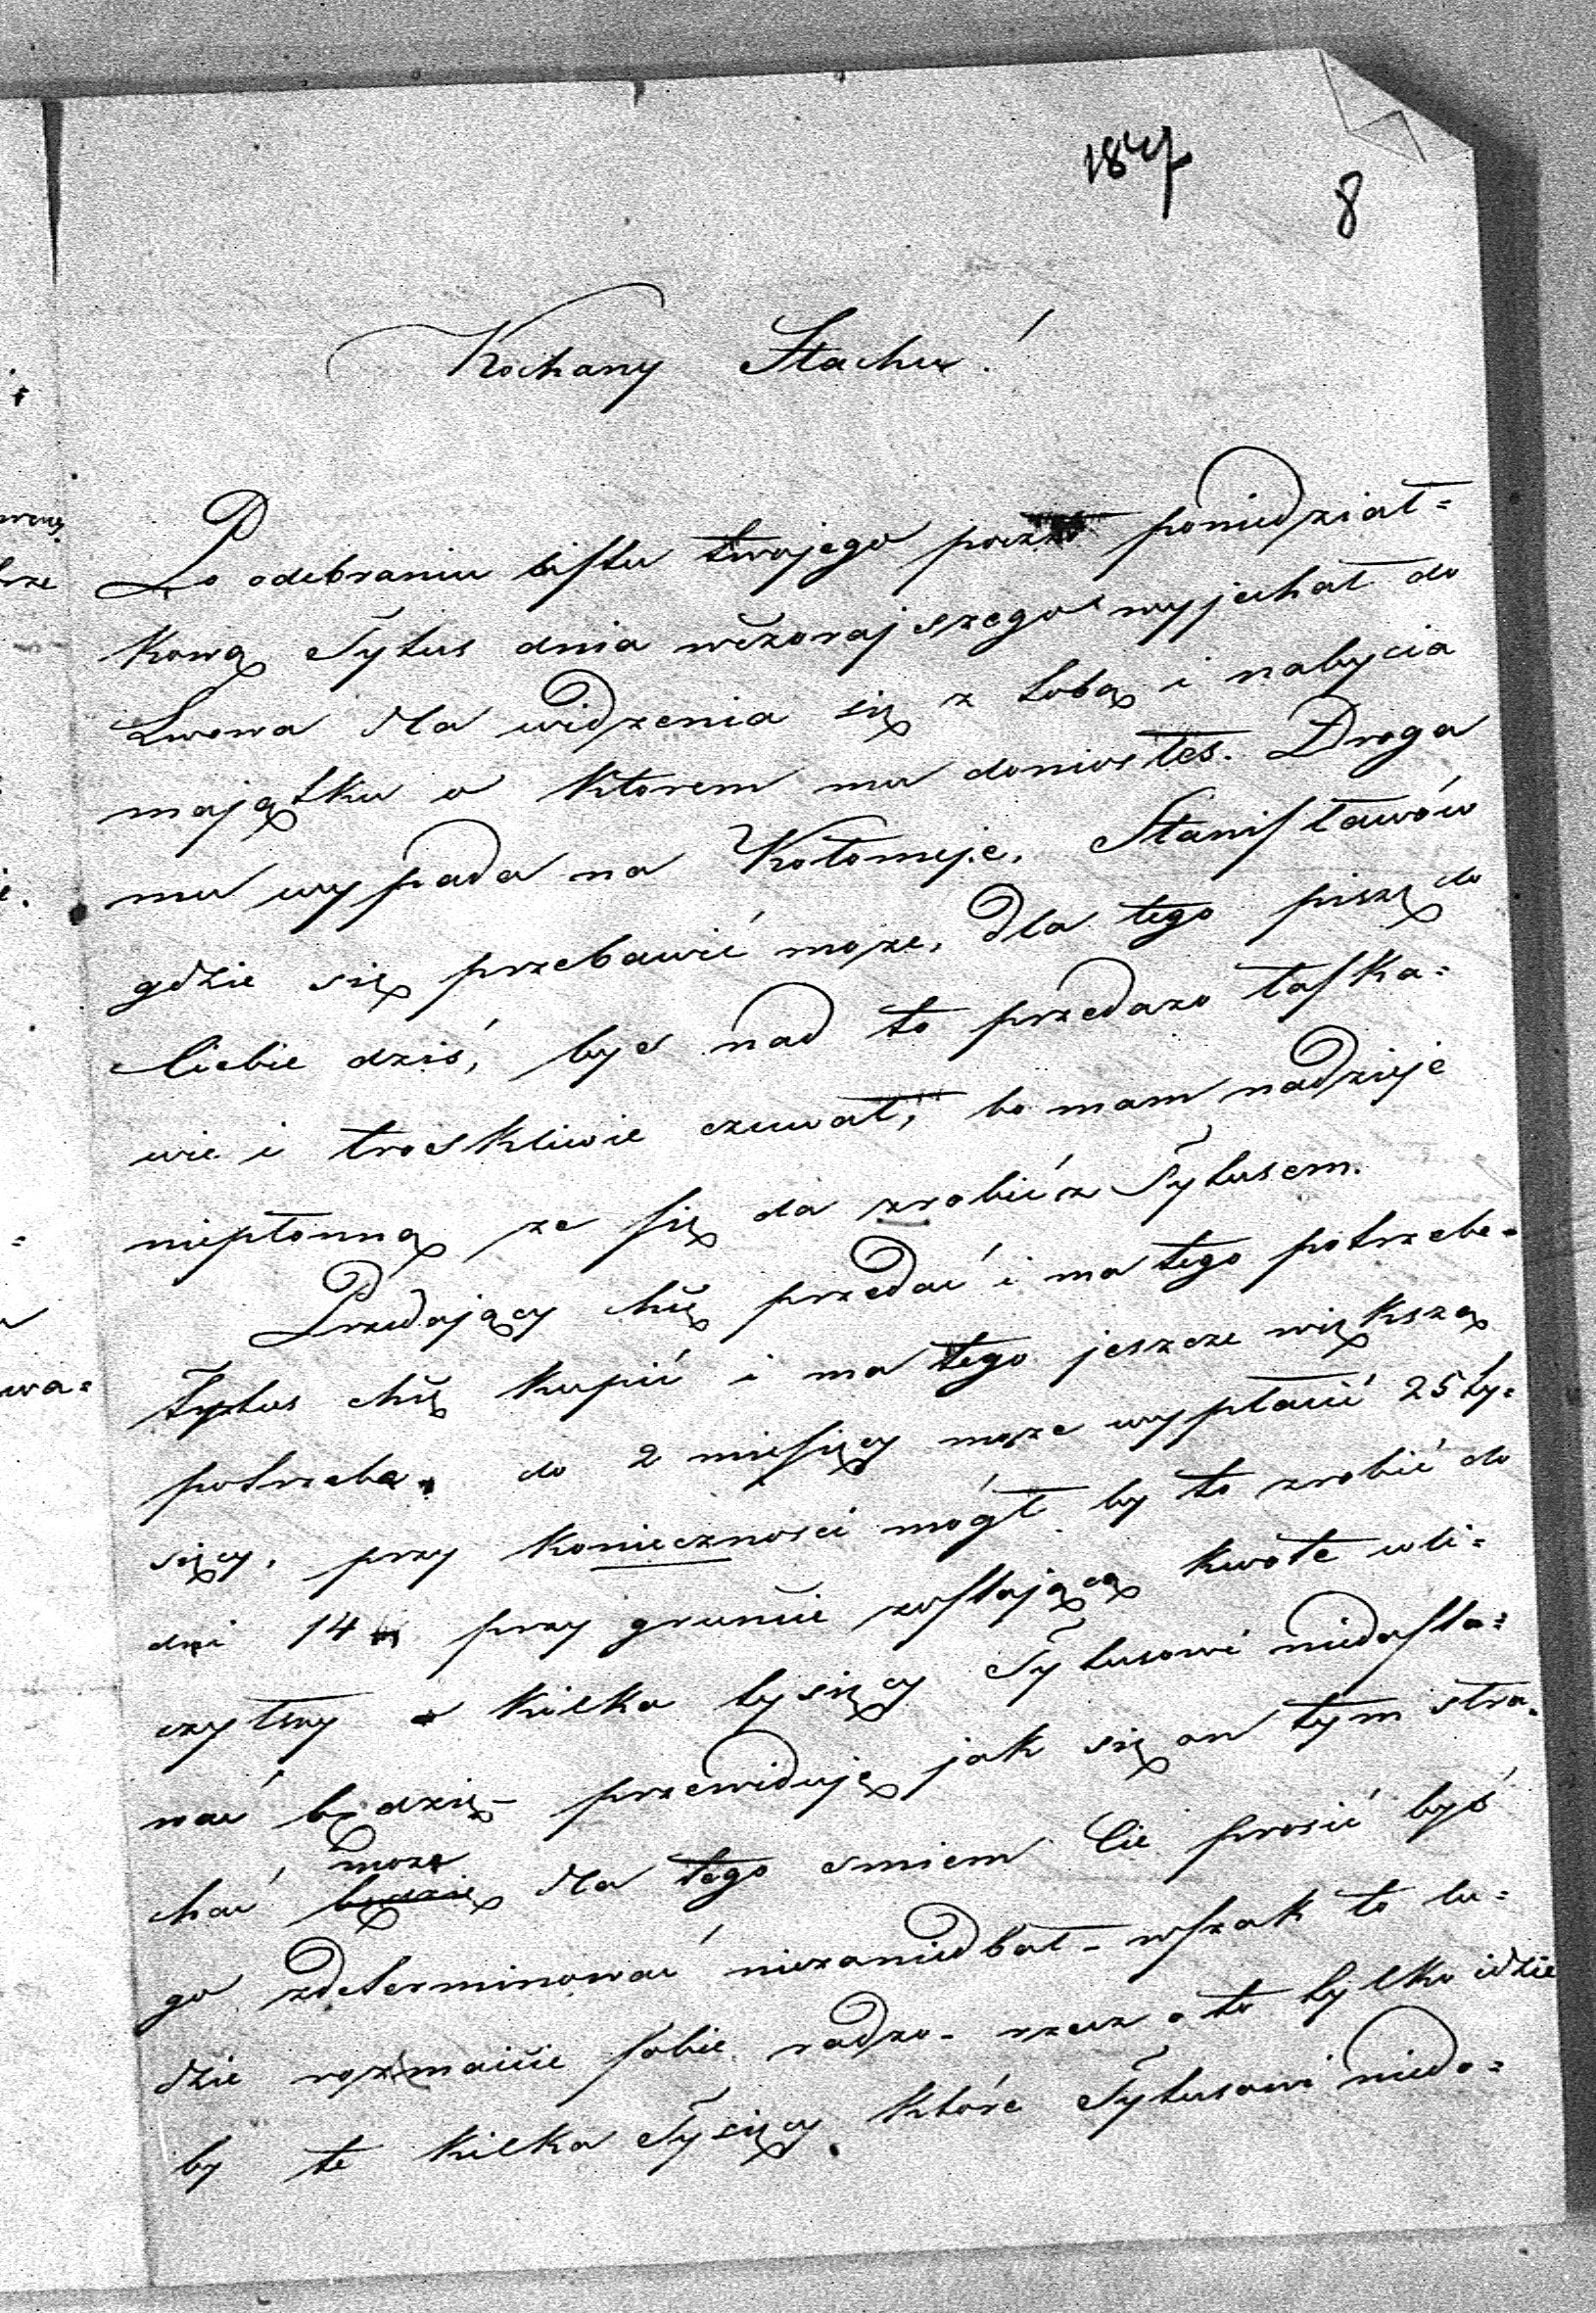 1847
8
Kochany Stachu!
Po odebraniu listu twojego poczto poniedział=
kową Tytus dnia wczorajszego wyjechał do
Lwowa dla widzenia się z tobą i nabycia
majątku o ktorem mu doniosłes. Droga
mu wypada na Kołomeje, Stanisławów
gdzie się przebawić może, dla tego piszę do
Ciebie dziś, byś nad to przedarzo łaska=
wie i troskliwie czuwał, bo mam nadzieje
niepłonną że się da zrobić z Tytusem.
Przedający chce przedać i ma tego potrzebe.
Tytus chce kupić i ma tego jeszcze większą
potrzebe. do 2 miesięcy może wypłacić 25 ty=
sięcy, przy konieczności mógł by to zrobić do
dni 14 przy gruncie zostającą kwote wli=
czywszy kilka tysięcy Tytusowi niedosta=
wać będzie- przewiduję jak się on tym stra=
chać może będzie dla tego smiem Cie prosić byś
go zdeterminować niezaniedbał- wszak to lu=
dzie rozmaicie sobie radzo- rzecz o to tylko idzie
by te kilka Tysięcy, które Tytusowi niedo=